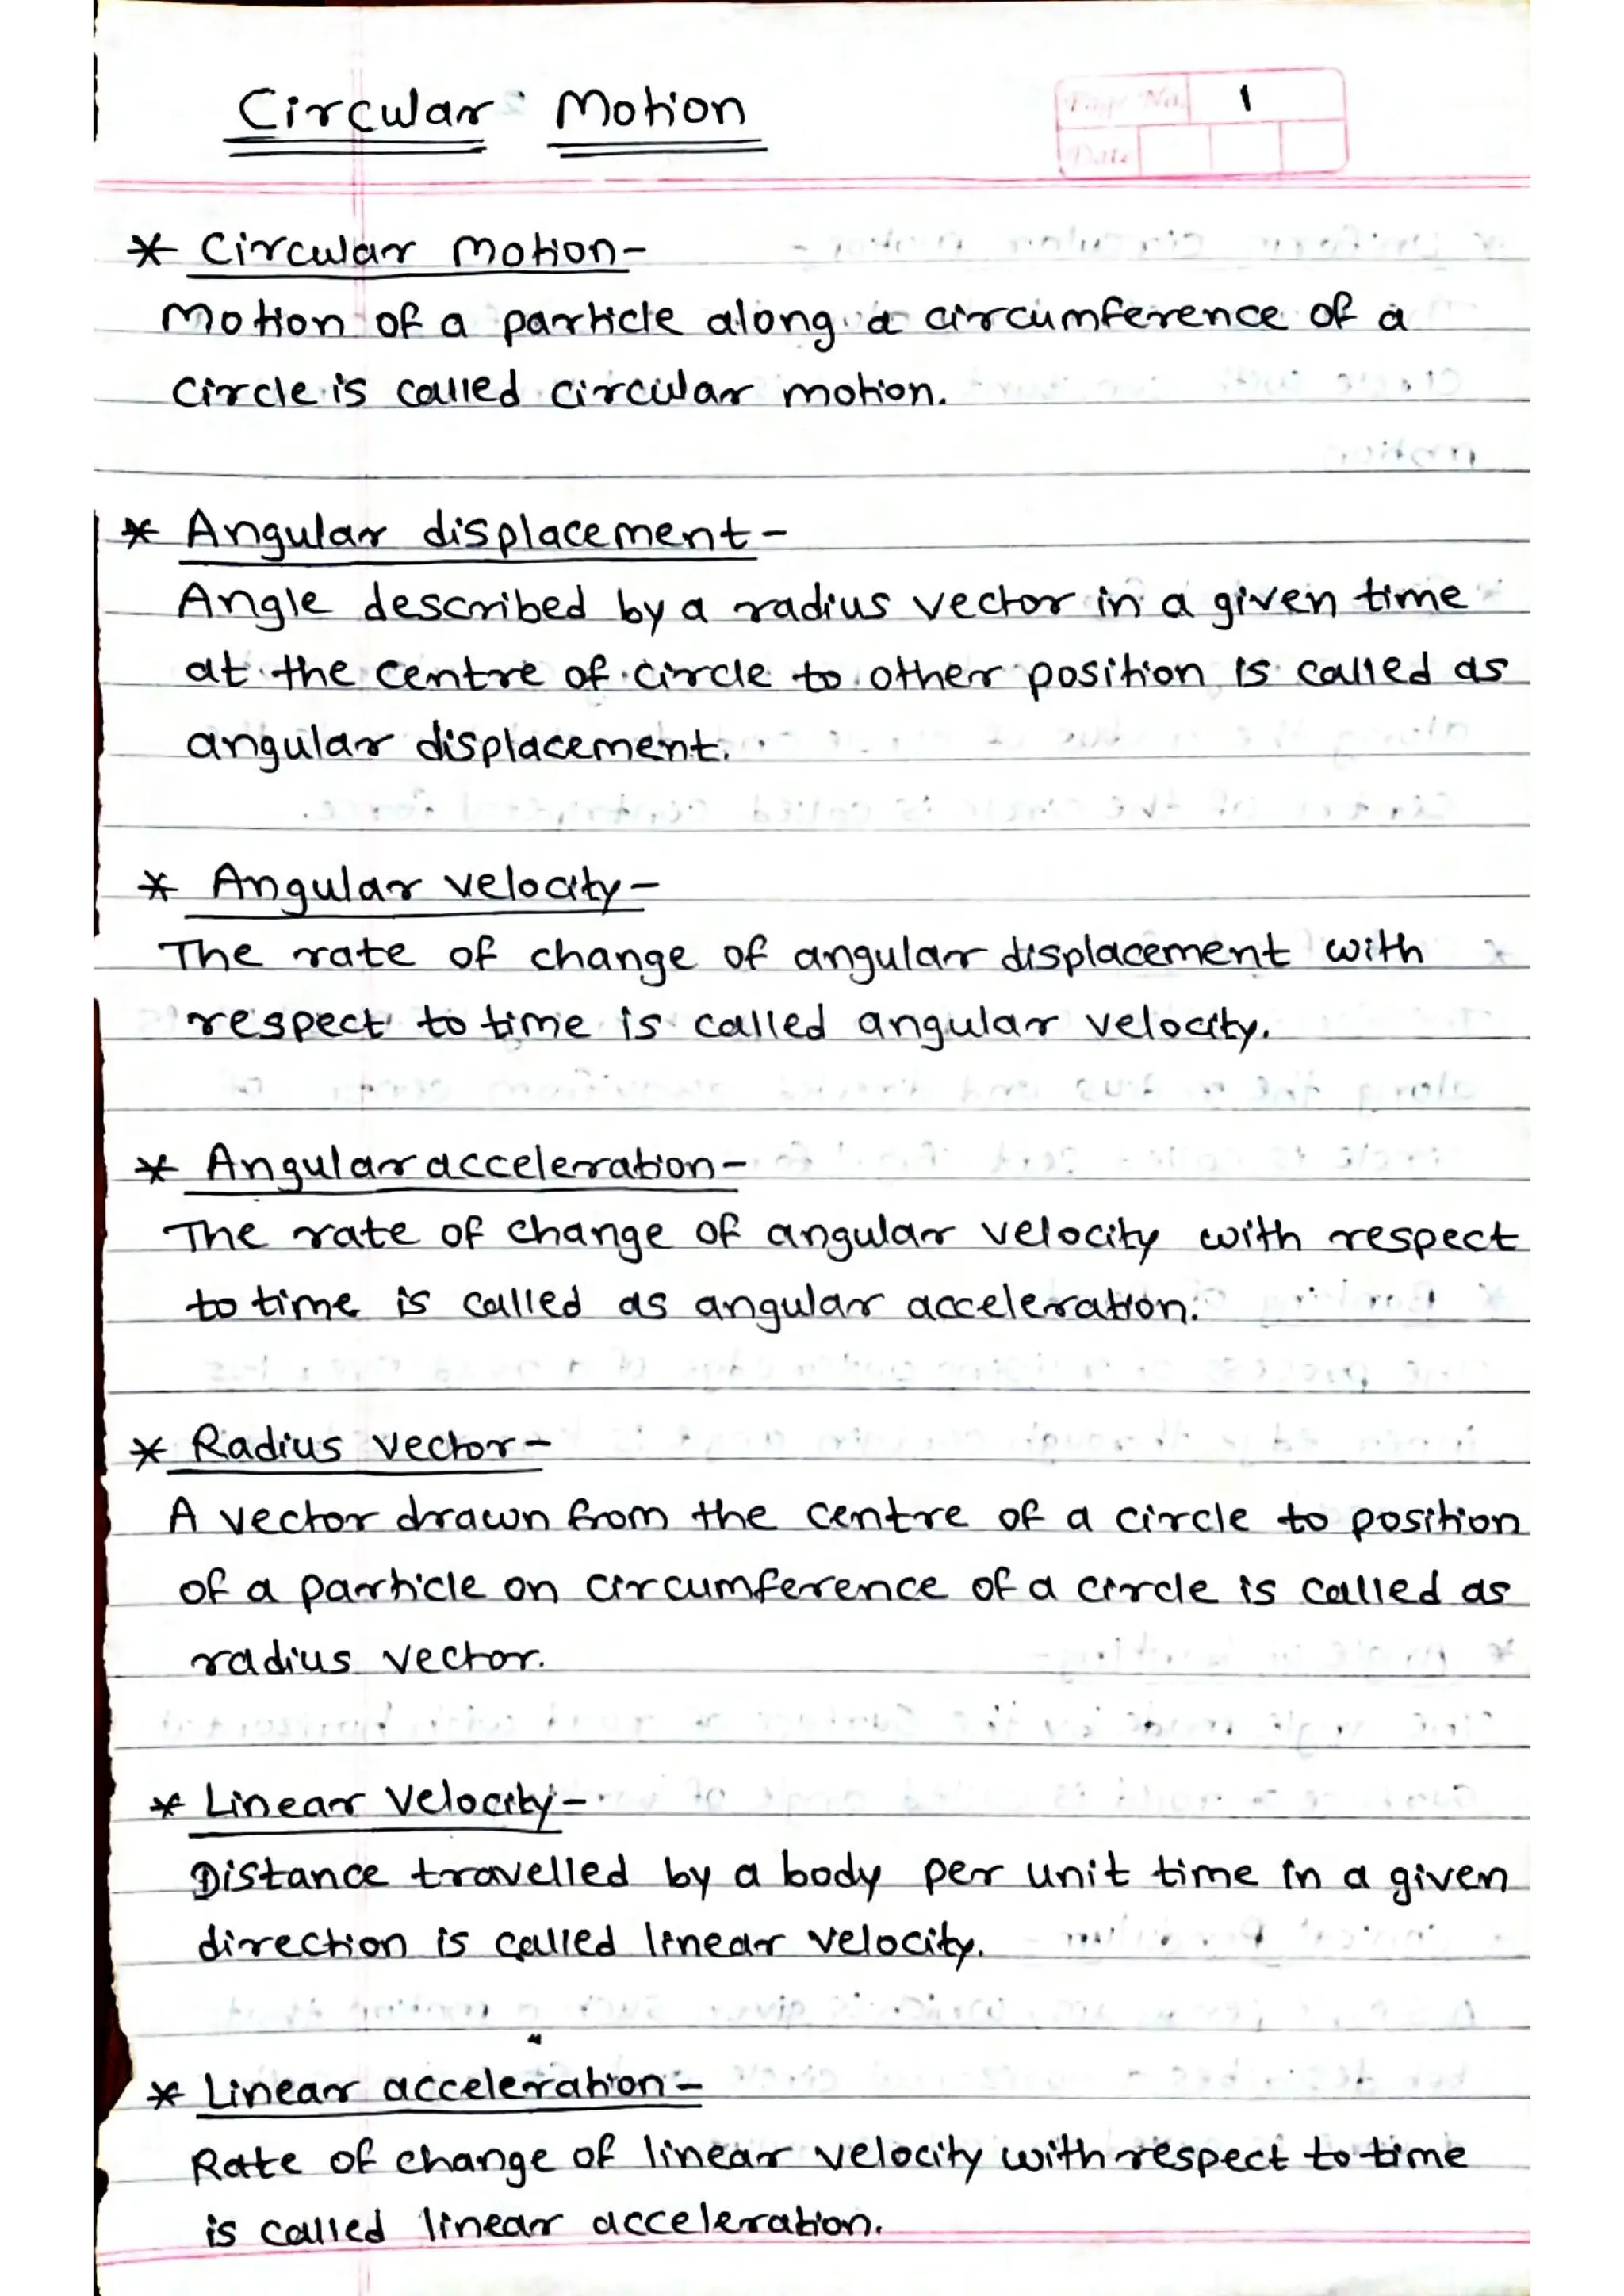 Circular Motion
Page No. 1
Date
* Circular motion-
Motion of a particle along a circumference of a
circle is called circular motion.
* Angular displacement-
Angle described by a radius vector in a given time
at the centre of circle to other position is called as
angular displacement.
* Angular velocity-
The rate of change of angular displacement with
respect to time is called angular velocity.
* Angular acceleration-
The rate of change of angular velocity with respect
to time is called as angular acceleration.
* Radius vector-
A vector drawn from the centre of a circle to position
of a particle on circumference of a circle is called as
radius vector.
* Linear velocity-
Distance travelled by a body per unit time in a given
direction is called linear velocity.
* Linear acceleration-
Rate of change of linear velocity with respect to time
is called linear acceleration.